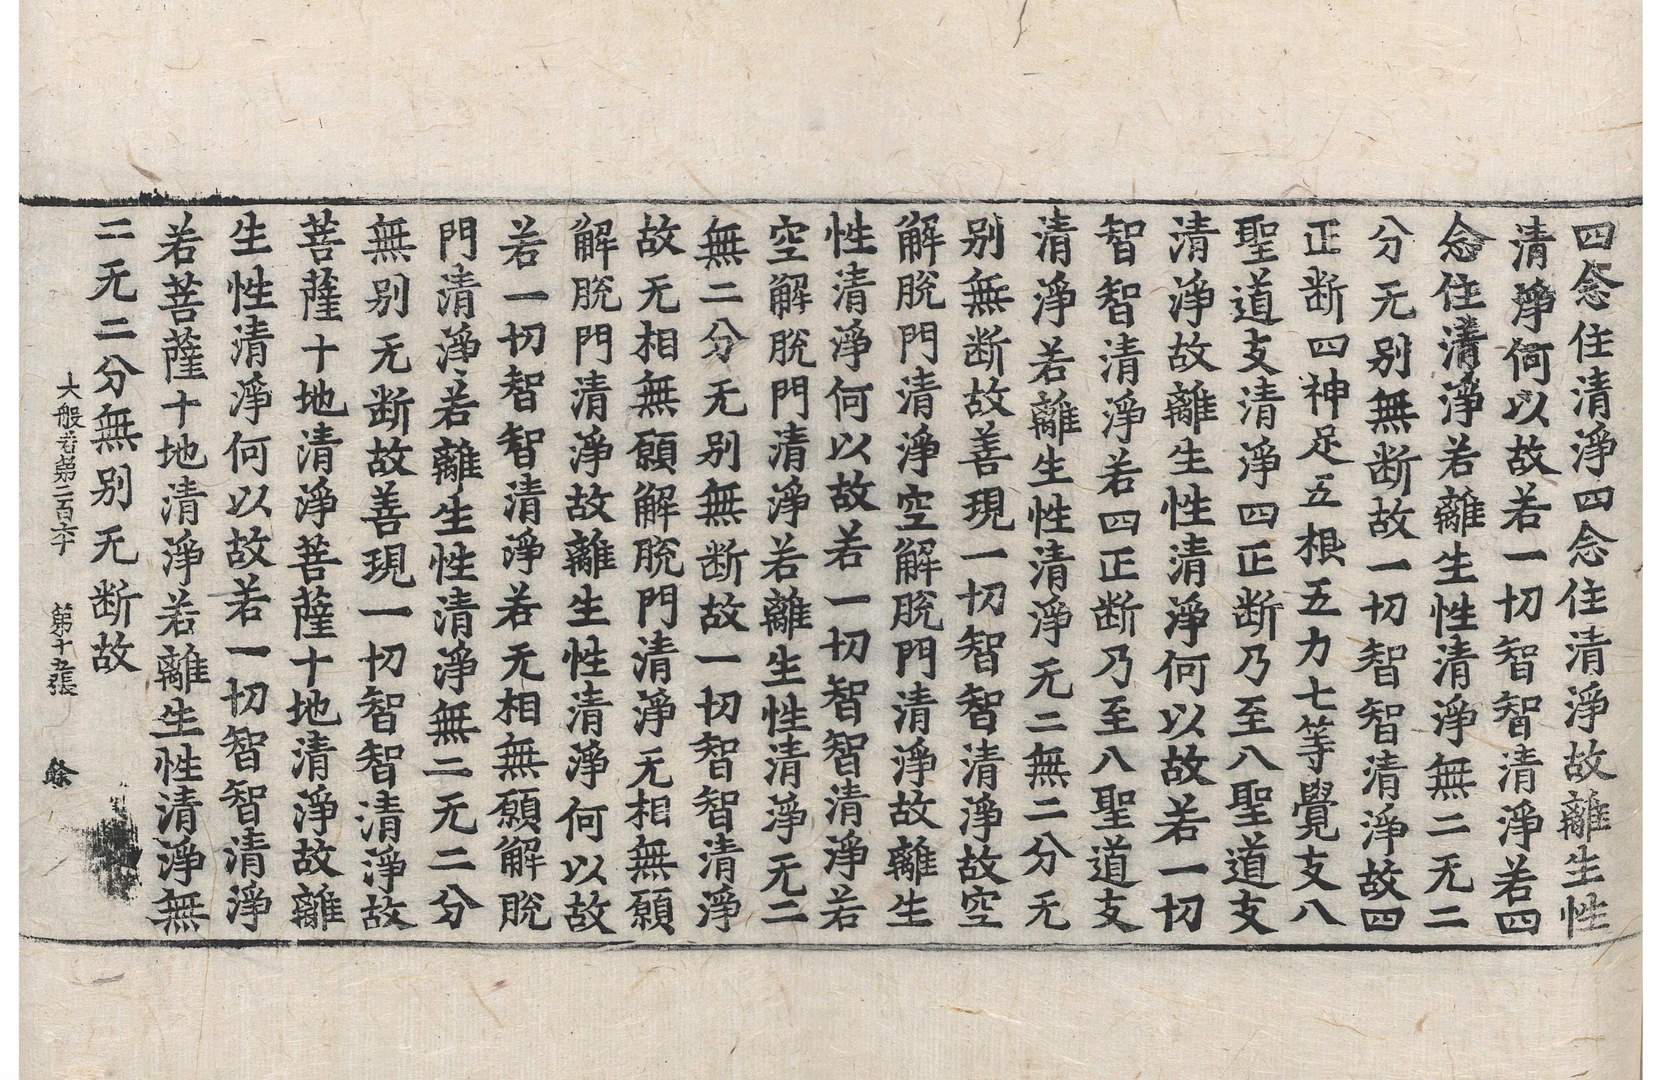 四念住清淨四念住清淨故離生性
清淨何以故若一切智智清淨若四
念住清淨若離生性清淨無二无二
分无别無断故一切智智清淨故四
正断四神足五根五力七等覺支八
聖道支清淨四正断乃至八聖道支
清淨故離生性清淨何以故若一切
智智清淨若四正断乃至八聖道支
清淨若離生性清淨无二無二分无
别無断故善現一切智智清淨故空
解脫門清淨空解脫門清淨故離生
性清淨何以故若一切智智清淨若
空解脫門清淨若離生性清淨无二
無二分无别無断故一切智智清淨
故无相無願解脫門清淨无相無願
解脫門清淨故離生性清淨何以故
若一切智智清淨若无相無願解脫
門清淨若離生性清淨無二无二分
無别无断故善現一切智智清淨故
菩薩十地清淨菩薩十地清淨故離
生性清淨何以故若一切智智清淨
若菩薩十地清淨若離生性清淨無
二无二分無别无断故
大般若第二百六十 第十五張 餘